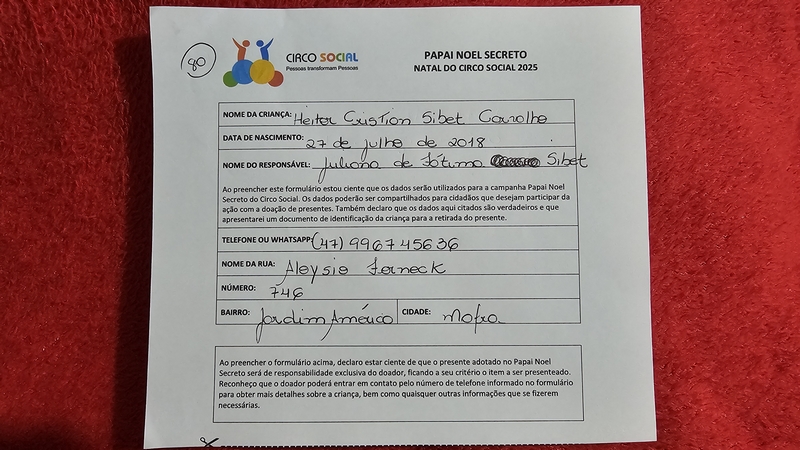 80
CIRCO SOCIAL
Pessoas transformam Pessoas
PAPAI NOEL SECRETO
NATAL DO CIRCO SOCIAL 2025
NOME DA CRIANÇA: Heitor Cristion Sibet Carvolho
DATA DE NASCIMENTO: 27 de julho de 2018
NOME DO RESPONSÁVEL: Juliana de Fátima Sibet
Ao preencher este formulário estou ciente que os dados serão utilizados para a campanha Papai Noel
Secreto do Circo Social. Os dados poderão ser compartilhados para cidadãos que desejam participar da
ação com a doação de presentes. Também declaro que os dados aqui citados são verdadeiros e que
apresentarei um documento de identificação da criança para a retirada do presente.
TELEFONE OU WHATSAPP: (47) 996745636
NOME DA RUA: Aloysio Ferneck
NÚMERO: 746
BAIRRO: Jardim América CIDADE: Mafra
Ao preencher o formulário acima, declaro estar ciente de que o presente adotado no Papai Noel
Secreto será de responsabilidade exclusiva do doador, ficando a seu critério o item a ser presenteado.
Reconheço que o doador poderá entrar em contato pelo número de telefone informado no formulário
para obter mais detalhes sobre a criança, bem como quaisquer outras informações que se fizerem
necessárias.